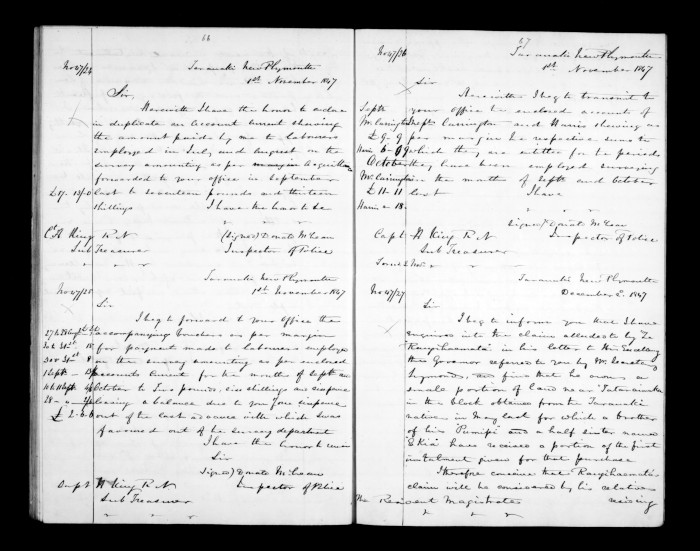 66
No 47/24 Taranaki New Plymouth
1st November 1847
Sir,
Herewith I have the honor to enclose
in duplicate an account current shewing
the amount paid by me to labourers
employed in July and August on the
survey amounting as per margin
forwarded to your office in September
£17. 13/0 last to seventeen pounds and thirteen
shillings I have the honor to be
Ct H King R N (Signed) Donald McLean
Sub Treasurer Inspector of Police
Taranaki New Plymouth
No 47/25 1st November 1847
Sir
I beg to forward to your office the
accompanying vouchers as per margin
for payment made to labourers employed
on the survey amounting as per enclosed
account current for the month of Septr and
October to two pounds, six shillings and sixpence
leaving a balance due to you sixpence
£ 2-6-6 out of the last advance with which I was
favoured out of the survey department
I have the honor to
Sir
(Signed) Donald McLean
Capt H King R N Inspector of Police
Sub Treasurer
67
No 47/26 Taranaki New Plymouth
1st November 1847
Sir
Herewith I beg to transmit to
Septr your office the enclosed accounts of
Mr Carrington Messrs Carrington and Harris shewing as
£ 9. 9 per margin the respective sums to
Harris 6. which they are entitled for the periods
October they have been employed surveying
Mr Carrington in the month of Septr and October
£ 11-11 last I have
Harris 18-
(Signed) Donald McLean
Capt H King R N Inspector of Police
Sub Treasurer
Taranaki New Plymouth
No 47/27 December 2. 1847
Sir
I beg to inform you that I have
enquired into the claim alluded to by Te
Rangihaeata in his letter to His Excellency
the Governor referred to you by Mr Secretary
Symonds, and find that he owns a
small portion of land near Tataraimaka
in the block obtained from the Taranaki
natives in May last for which a brother
of his and a half sister named
E Kia have received a portion of the first
instalment given for that purchase
I therefore conceive that Rangihaeata's
claim will be considered by his relatives
The Resident Magistrate residing